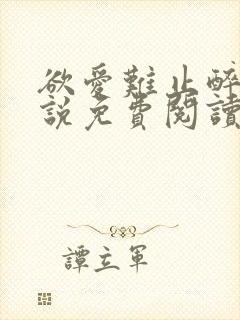 欲愛難止醉
說免費閱讀
譚立軍